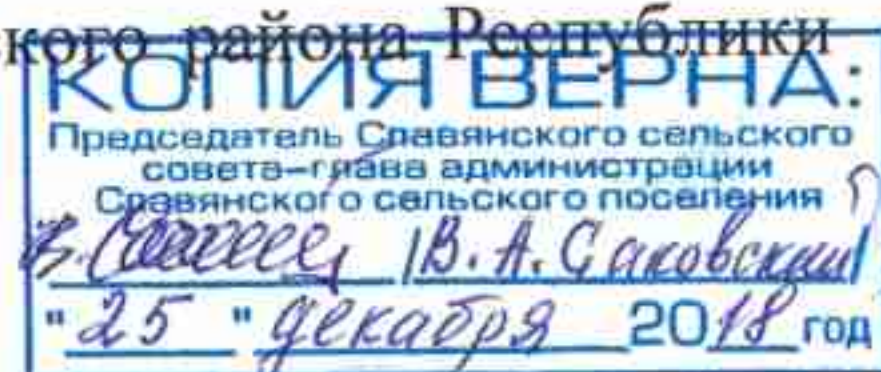 кого района Республики
КОПИЯ ВЕРНА:
Председатель Славянского сельского
совета–глава администрации
Славянского сельского поселения
/В. А. Саковский/
"25" декабря 2018 год